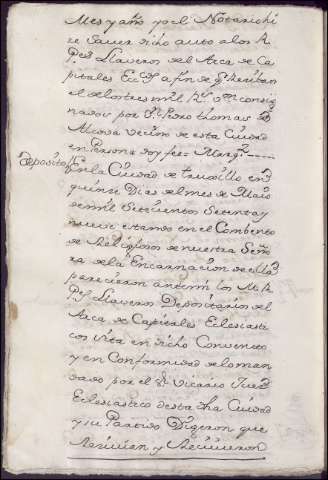 Mes y año yo el Notario hi
ze saver dicho auto a los R.
Pes. Llaveros del Arca de Ca
pitales Eccos. a fin de qe. Reciban
el de los tres mil Rs. Vn. consig
nados por Dn. Pedro Thomas de
Alcova vecino de esta Ciudad
en Persona doy fee = Marqz.
Deposito
En la Ciudad de truxillo en
quinze Dias del mes de Maio
de mil Setecientos Setenta y
nueve estando en el Combento
de Religiosas de nuestra Seño
ra de la Encarnacion de ella
parecieron ante mi los M. R.
Pes. Llaveros Depositarios del
Arca de Capitales Eclesiasti
cos sita en dicho Convento
y en Conformidad de lo man
dado por el Sr. Vicario Juez
Eclesiastico de esta dha Ciudad
y su Partido Digeron que
Recivian y Recivieron